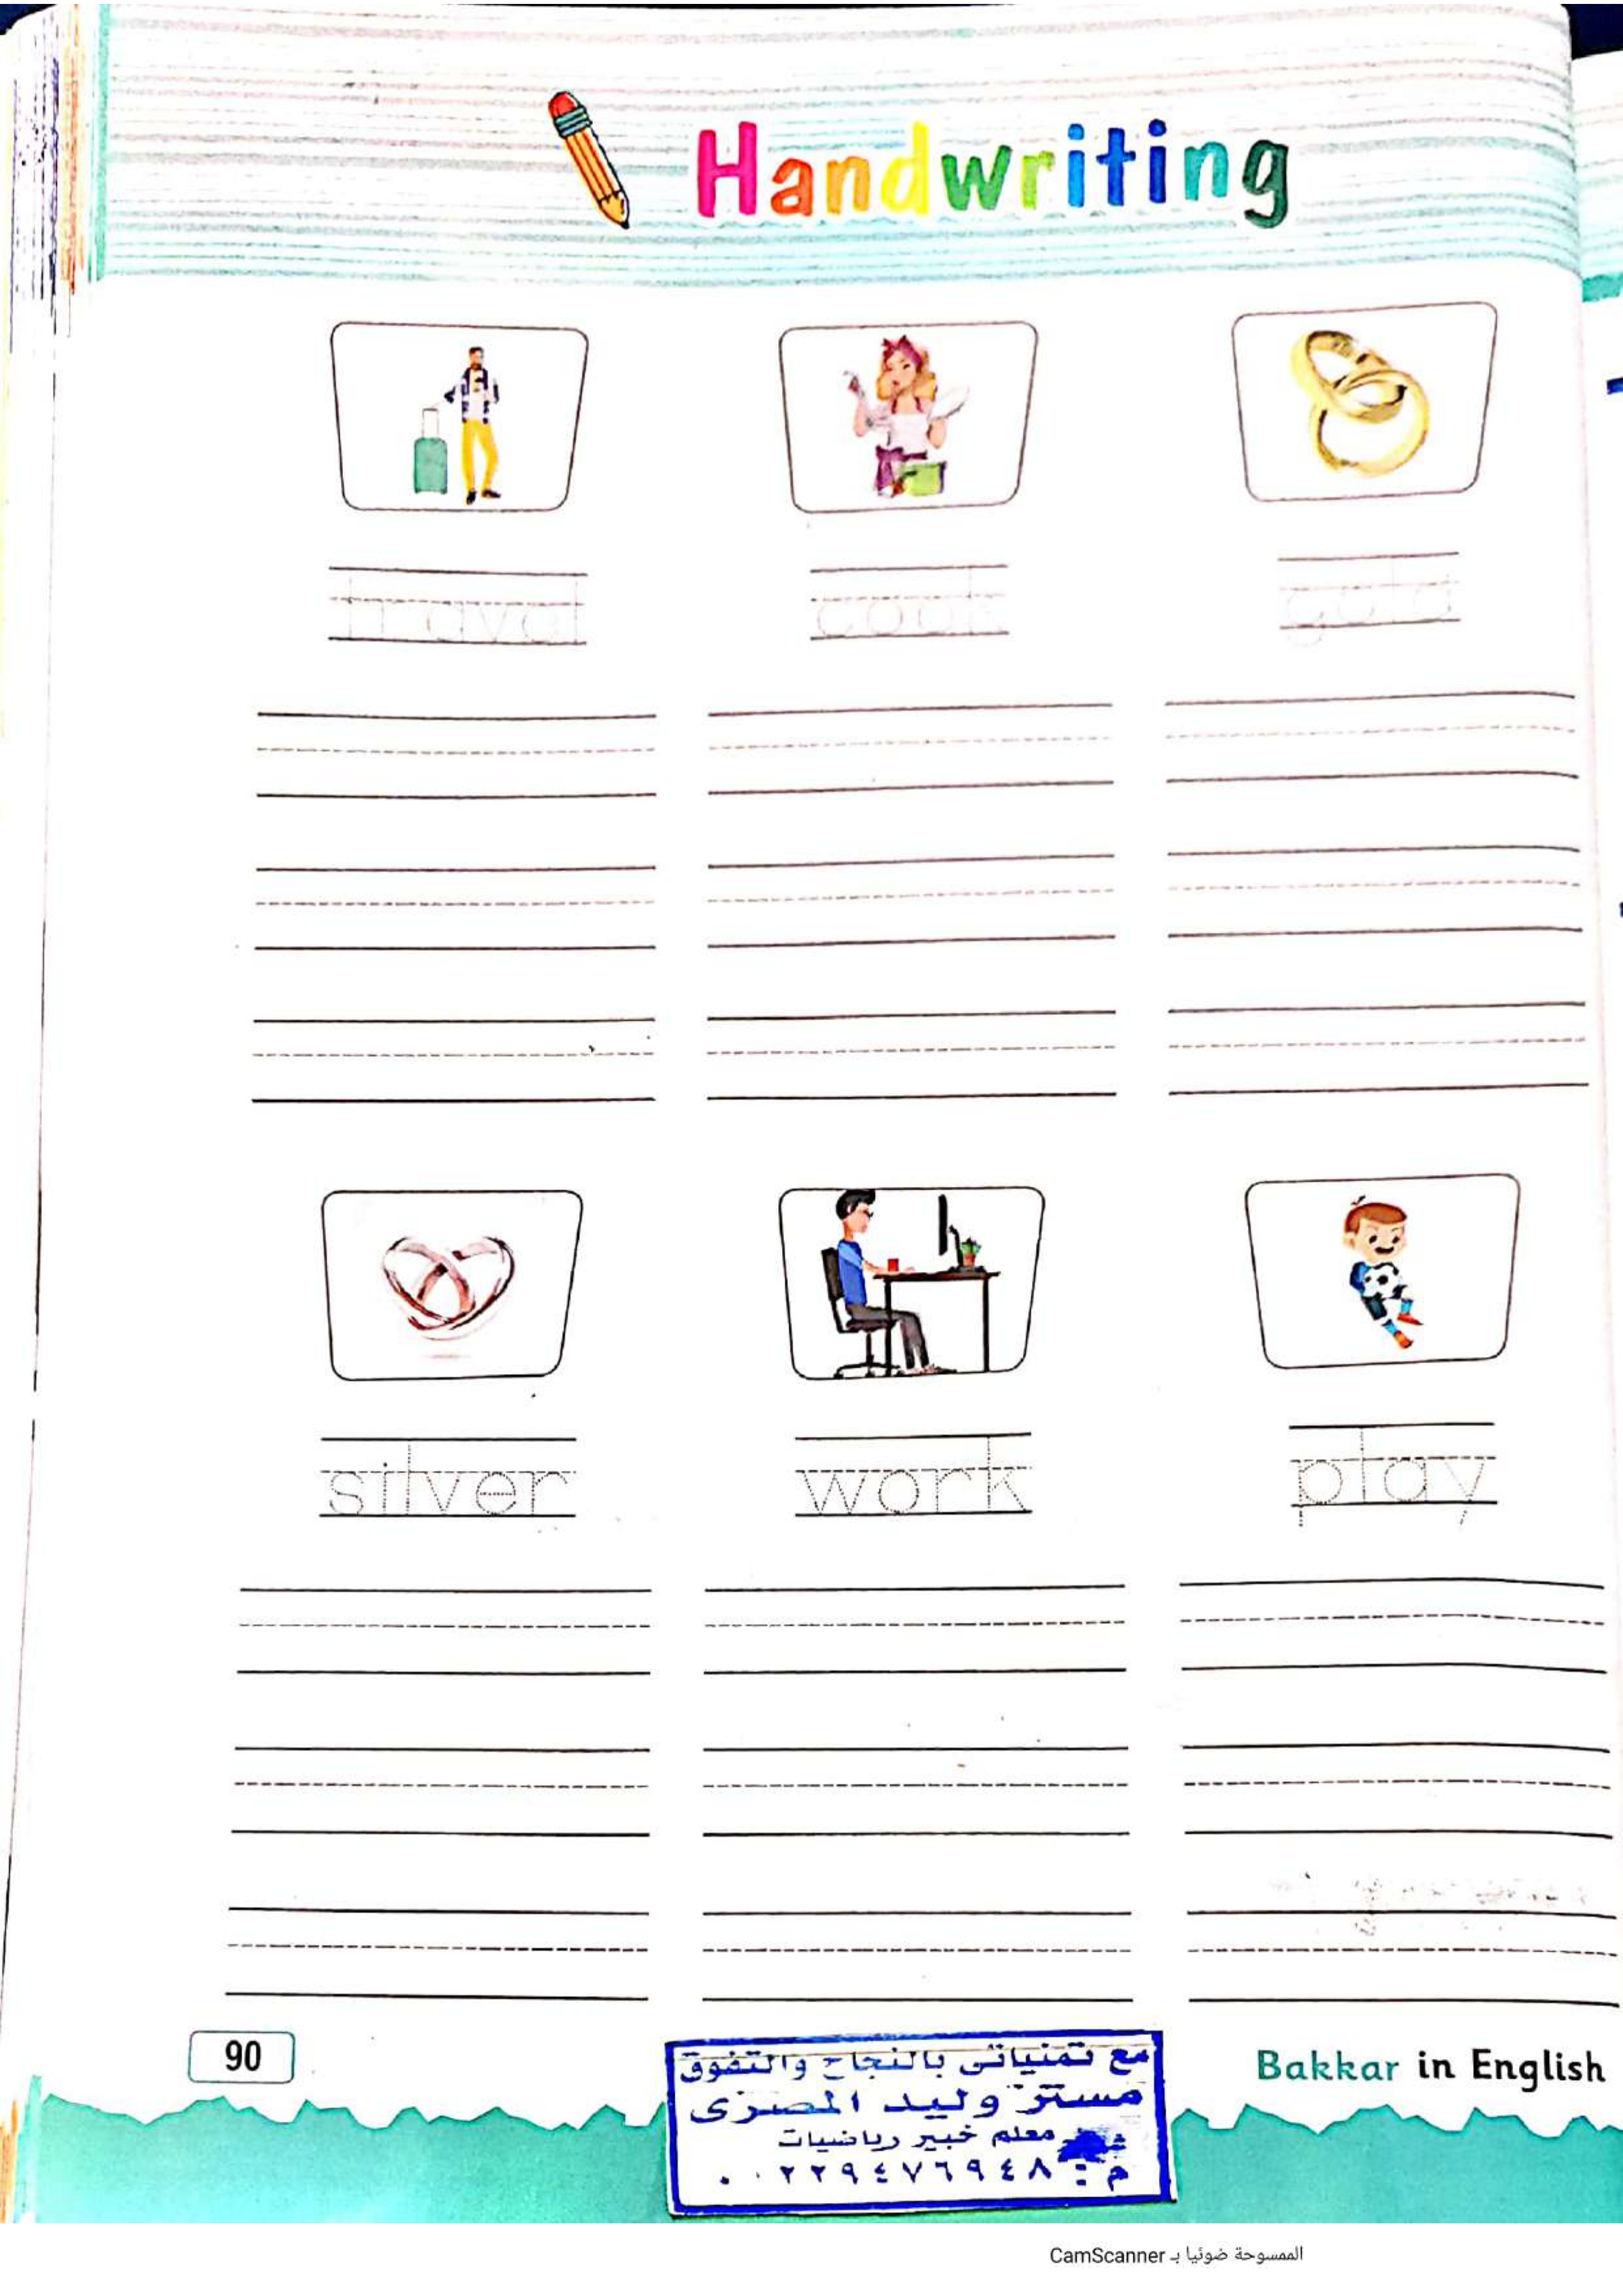 Handwriting
travel cook gold
silver work play
90
مع تمنياتى بالنجاح والتفوق
مستر وليد المصرى
معلم خبير رياضيات
م : ٠٠٢٢٩٤٧٦٩٤٨
Bakkar in English
الممسوحة ضوئيا بـ CamScanner